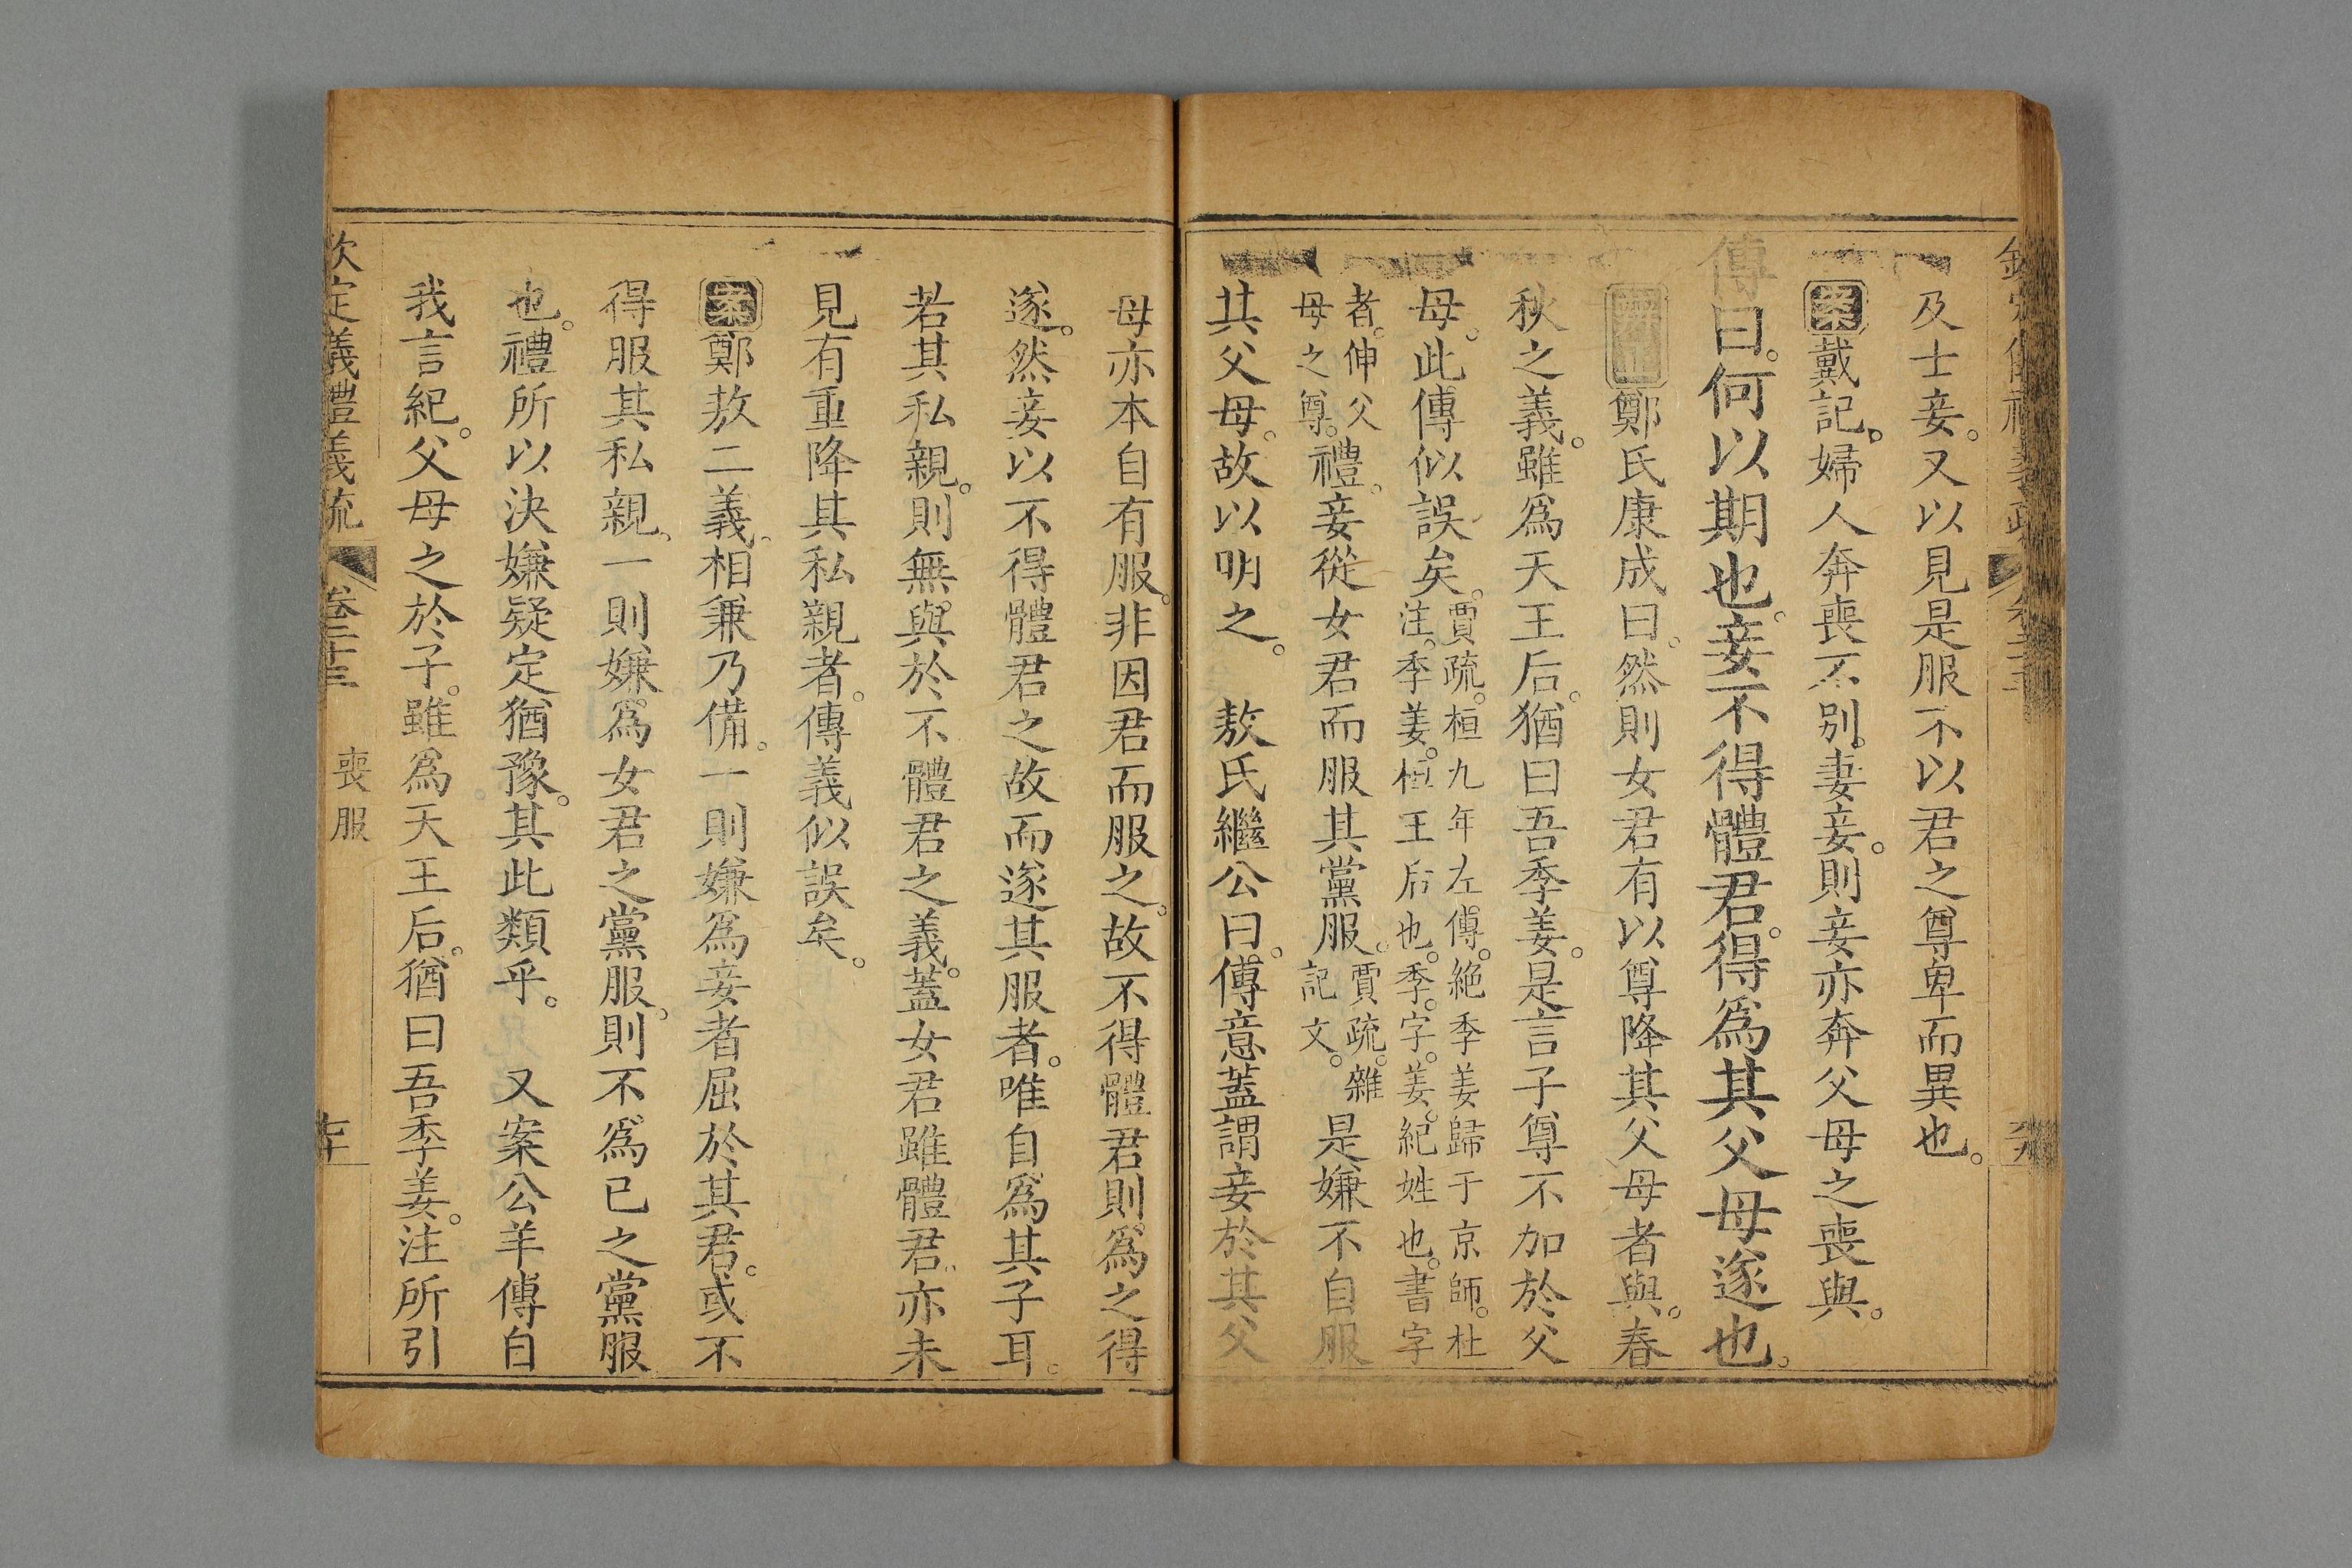 及士妾。又以見是服不以君之尊卑而異也。
案戴記。婦人奔喪不別。妻妾。則妾亦奔父母之喪與。
傳曰。何以期也。妾不得體君。得爲其父母遂也。
鄭氏康成曰。然則女君有以尊降其父母者與。春
秋之義。雖爲天王后。猶曰吾季姜。是言子尊不加於父
母。此傳似誤矣。賈疏。桓九年左傳。紀季姜歸于京師。杜
注。季姜。桓王后也。季。字。姜。紀姓也。書字
者。伸父
母之尊。禮。妾從女君而服其黨服。賈疏。雜
記文。是嫌不自服
其父母。故以明之。　敖氏繼公曰。傳意蓋謂妾於其父
母亦本自有服。非因君而服之。故不得體君則爲之得
遂。然妾以不得體君之故而遂其服者。唯自爲其子耳。
若其私親。則無與於不體君之義。蓋女君雖體君。亦未
見有重降其私親者。傳義似誤矣。
案鄭敖二義。相兼乃備。一則嫌爲妾者屈於其君。或不
得服其私親。一則嫌爲女君之黨服。則不爲己之黨服
也。禮所以決嫌疑定猶豫。其此類乎。　又案公羊傳自
我言紀。父母之於子。雖爲天王后。猶曰吾季姜。注所引
欽定儀禮義疏　卷二十三　喪服